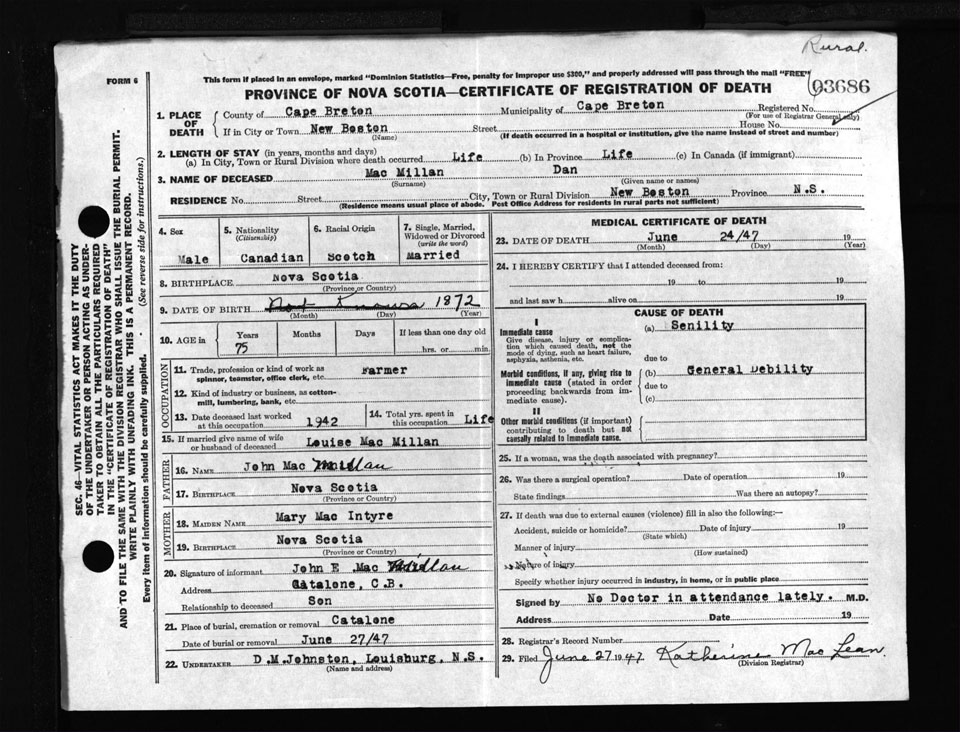 Rural.
FORM 6
This form if placed in an envelope, marked "Dominion Statistics—Free, penalty for improper use $300," and properly addressed will pass through the mail "FREE"
03686
PROVINCE OF NOVA SCOTIA—CERTIFICATE OF REGISTRATION OF DEATH
1. PLACE OF DEATH
County of Cape Breton Municipality of Cape Breton Registered No.
(For use of Registrar General only)
If in City or Town New Boston Street House No.
(Name) (If death occurred in a hospital or institution, give the name instead of street and number)
2. LENGTH OF STAY (in years, months and days)
(a) In City, Town or Rural Division where death occurred Life (b) In Province Life (c) In Canada (if immigrant)
3. NAME OF DECEASED Mac Millan Dan
(Surname) (Given name or names)
RESIDENCE No. Street City, Town or Rural Division New Boston Province N.S.
(Residence means usual place of abode. Post Office Address for residents in rural parts not sufficient)
4. Sex
Male
5. Nationality
(Citizenship)
Canadian
6. Racial Origin
Scotch
7. Single, Married,
Widowed or Divorced
(write the word)
Married
8. BIRTHPLACE Nova Scotia
(Province or Country)
9. DATE OF BIRTH Not Known 1872
(Month) (Day) (Year)
10. AGE in
Years Months Days If less than one day old
75 hrs. or min.
OCCUPATION
11. Trade, profession or kind of work as Farmer
spinner, teamster, office clerk, etc.
12. Kind of industry or business, as cotton-
mill, lumbering, bank, etc.
13. Date deceased last worked
at this occupation 1942
14. Total yrs. spent in
this occupation Life
15. If married give name of wife
or husband of deceased Louise Mac Millan
FATHER
16. NAME John Mac Millan
17. BIRTHPLACE Nova Scotia
(Province or Country)
MOTHER
18. MAIDEN NAME Mary Mac Intyre
19. BIRTHPLACE Nova Scotia
(Province or Country)
20. Signature of informant John E Mac Millan
Address Catalone, C.B.
Relationship to deceased Son
21. Place of burial, cremation or removal Catalone
Date of burial or removal June 27/47
22. UNDERTAKER D.M.Johnston, Louisburg, N.S.
(Name and address)
MEDICAL CERTIFICATE OF DEATH
23. DATE OF DEATH June 24/47 19
(Month) (Day) (Year)
24. I HEREBY CERTIFY that I attended deceased from:
19 to 19
and last saw h alive on 19
CAUSE OF DEATH
I
Immediate cause
Give disease, injury or complica-
tion which caused death, not the
mode of dying, such as heart failure,
asphyxia, asthenia, etc.
(a) Senility
due to
Morbid conditions, if any, giving rise to
immediate cause (stated in order
proceeding backwards from im-
mediate cause).
(b) General Debility
due to
(c)
II
Other morbid conditions (if important)
contributing to death but not
causally related to immediate cause.
25. If a woman, was the death associated with pregnancy?
26. Was there a surgical operation? Date of operation 19
State findings Was there an autopsy?
27. If death was due to external causes (violence) fill in also the following:—
Accident, suicide or homicide? Date of injury 19
(State which)
Manner of injury
(How sustained)
Nature of injury
Specify whether injury occurred in industry, in home, or in public place
Signed by No Doctor in attendance lately. M.D.
Address Date 19
28. Registrar's Record Number
29. Filed June 27 1947 Katherine Mac Lean
(Division Registrar)
SEC. 46—VITAL STATISTICS ACT MAKES IT THE DUTY
OF THE UNDERTAKER OR PERSON ACTING AS UNDER-
TAKER TO OBTAIN ALL THE PARTICULARS REQUIRED
IN THE "CERTIFICATE OF REGISTRATION OF DEATH"
AND TO FILE THE SAME WITH THE DIVISION REGISTRAR WHO SHALL ISSUE THE BURIAL PERMIT.
WRITE PLAINLY WITH UNFADING INK. THIS IS A PERMANENT RECORD.
Every item of information should be carefully supplied. (See reverse side for instructions.)